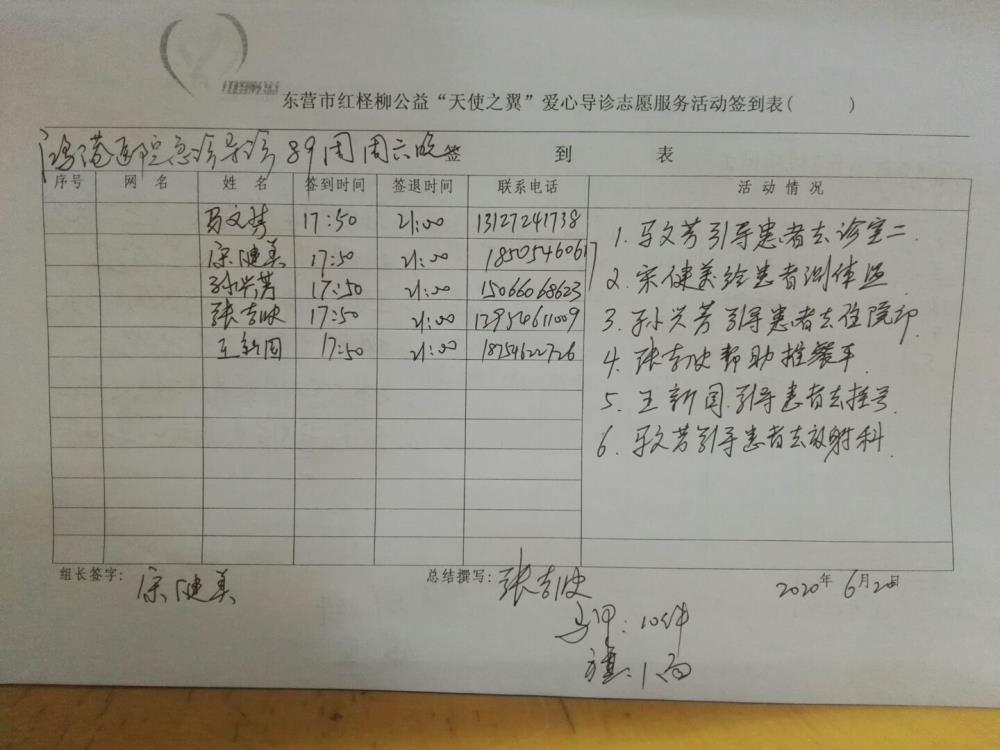 东营市红柽柳公益“天使之翼”爱心导诊志愿服务活动签到表( )
鸿港医院急诊导诊 89周周六晚 签 到 表
序号 网 名 姓 名 签到时间 签退时间 联系电话 活 动 情 况
马文芳 17:50 21:00 13127241738
宋健美 17:50 21:00 18505460617
孙兴芳 17:50 21:00 15066068623
张吉波 17:50 21:00 12954611009
王新国 17:50 21:00 18754622726
1. 马文芳引导患者去诊室二
2. 宋健美给患者测体温
3. 孙兴芳引导患者去住院部
4. 张吉波帮助推餐车
5. 王新国引导患者去挂号
6. 马文芳引导患者去放射科
组长签字: 宋健美 总结撰写: 张吉波 2020年 6月20日
马甲: 10件
旗: 1面